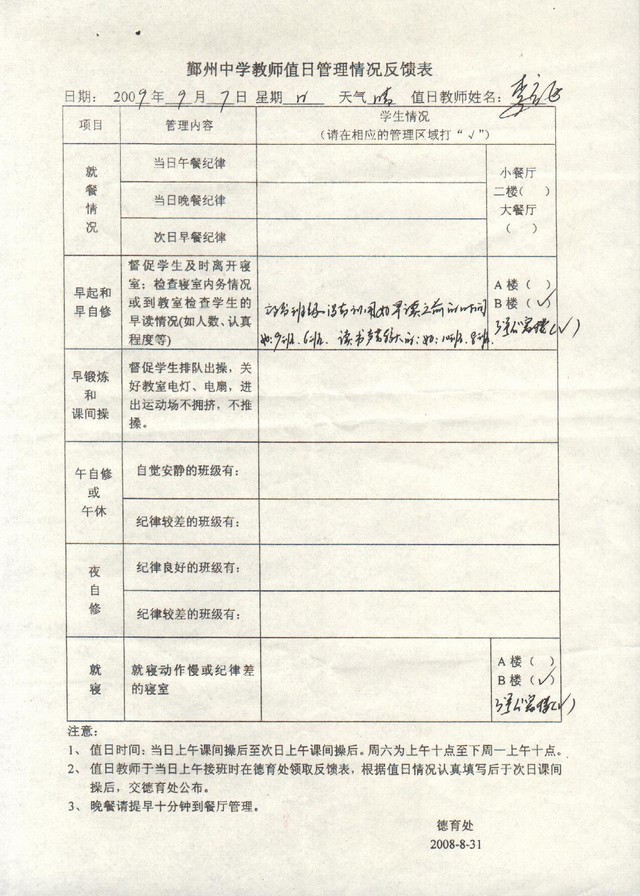 鄞州中学教师值日管理情况反馈表
日期： 2009年 9月 7日 星期 天气 晴 值日教师姓名：李
项目 管理内容 学生情况
（请在相应的管理区域打“√”）
就餐情况
当日午餐纪律
当日晚餐纪律
次日早餐纪律
小餐厅
二楼（ ）
大餐厅
（ ）
早起和
早自修
督促学生及时离开寝
室；检查寝室内务情况
或到教室检查学生的
早读情况(如人数、认真
程度等)
班级没有利用好早读之前的时间
如:9班、6班、读书声音较大的:如:10班、8班.
A 楼（ ）
B 楼（√）
（√）
早锻炼
和
课间操
督促学生排队出操，关
好教室电灯、电扇，进
出运动场不拥挤，不推
搡。
午自修
或
午休
自觉安静的班级有：
纪律较差的班级有：
夜
自
修
纪律良好的班级有：
纪律较差的班级有：
就
寝
就寝动作慢或纪律差
的寝室
A 楼（ ）
B 楼（√）
（√）
注意：
1、 值日时间：当日上午课间操后至次日上午课间操后。周六为上午十点至下周一上午十点。
2、 值日教师于当日上午接班时在德育处领取反馈表，根据值日情况认真填写后于次日课间
操后，交德育处公布。
3、 晚餐请提早十分钟到餐厅管理。
德育处
2008-8-31